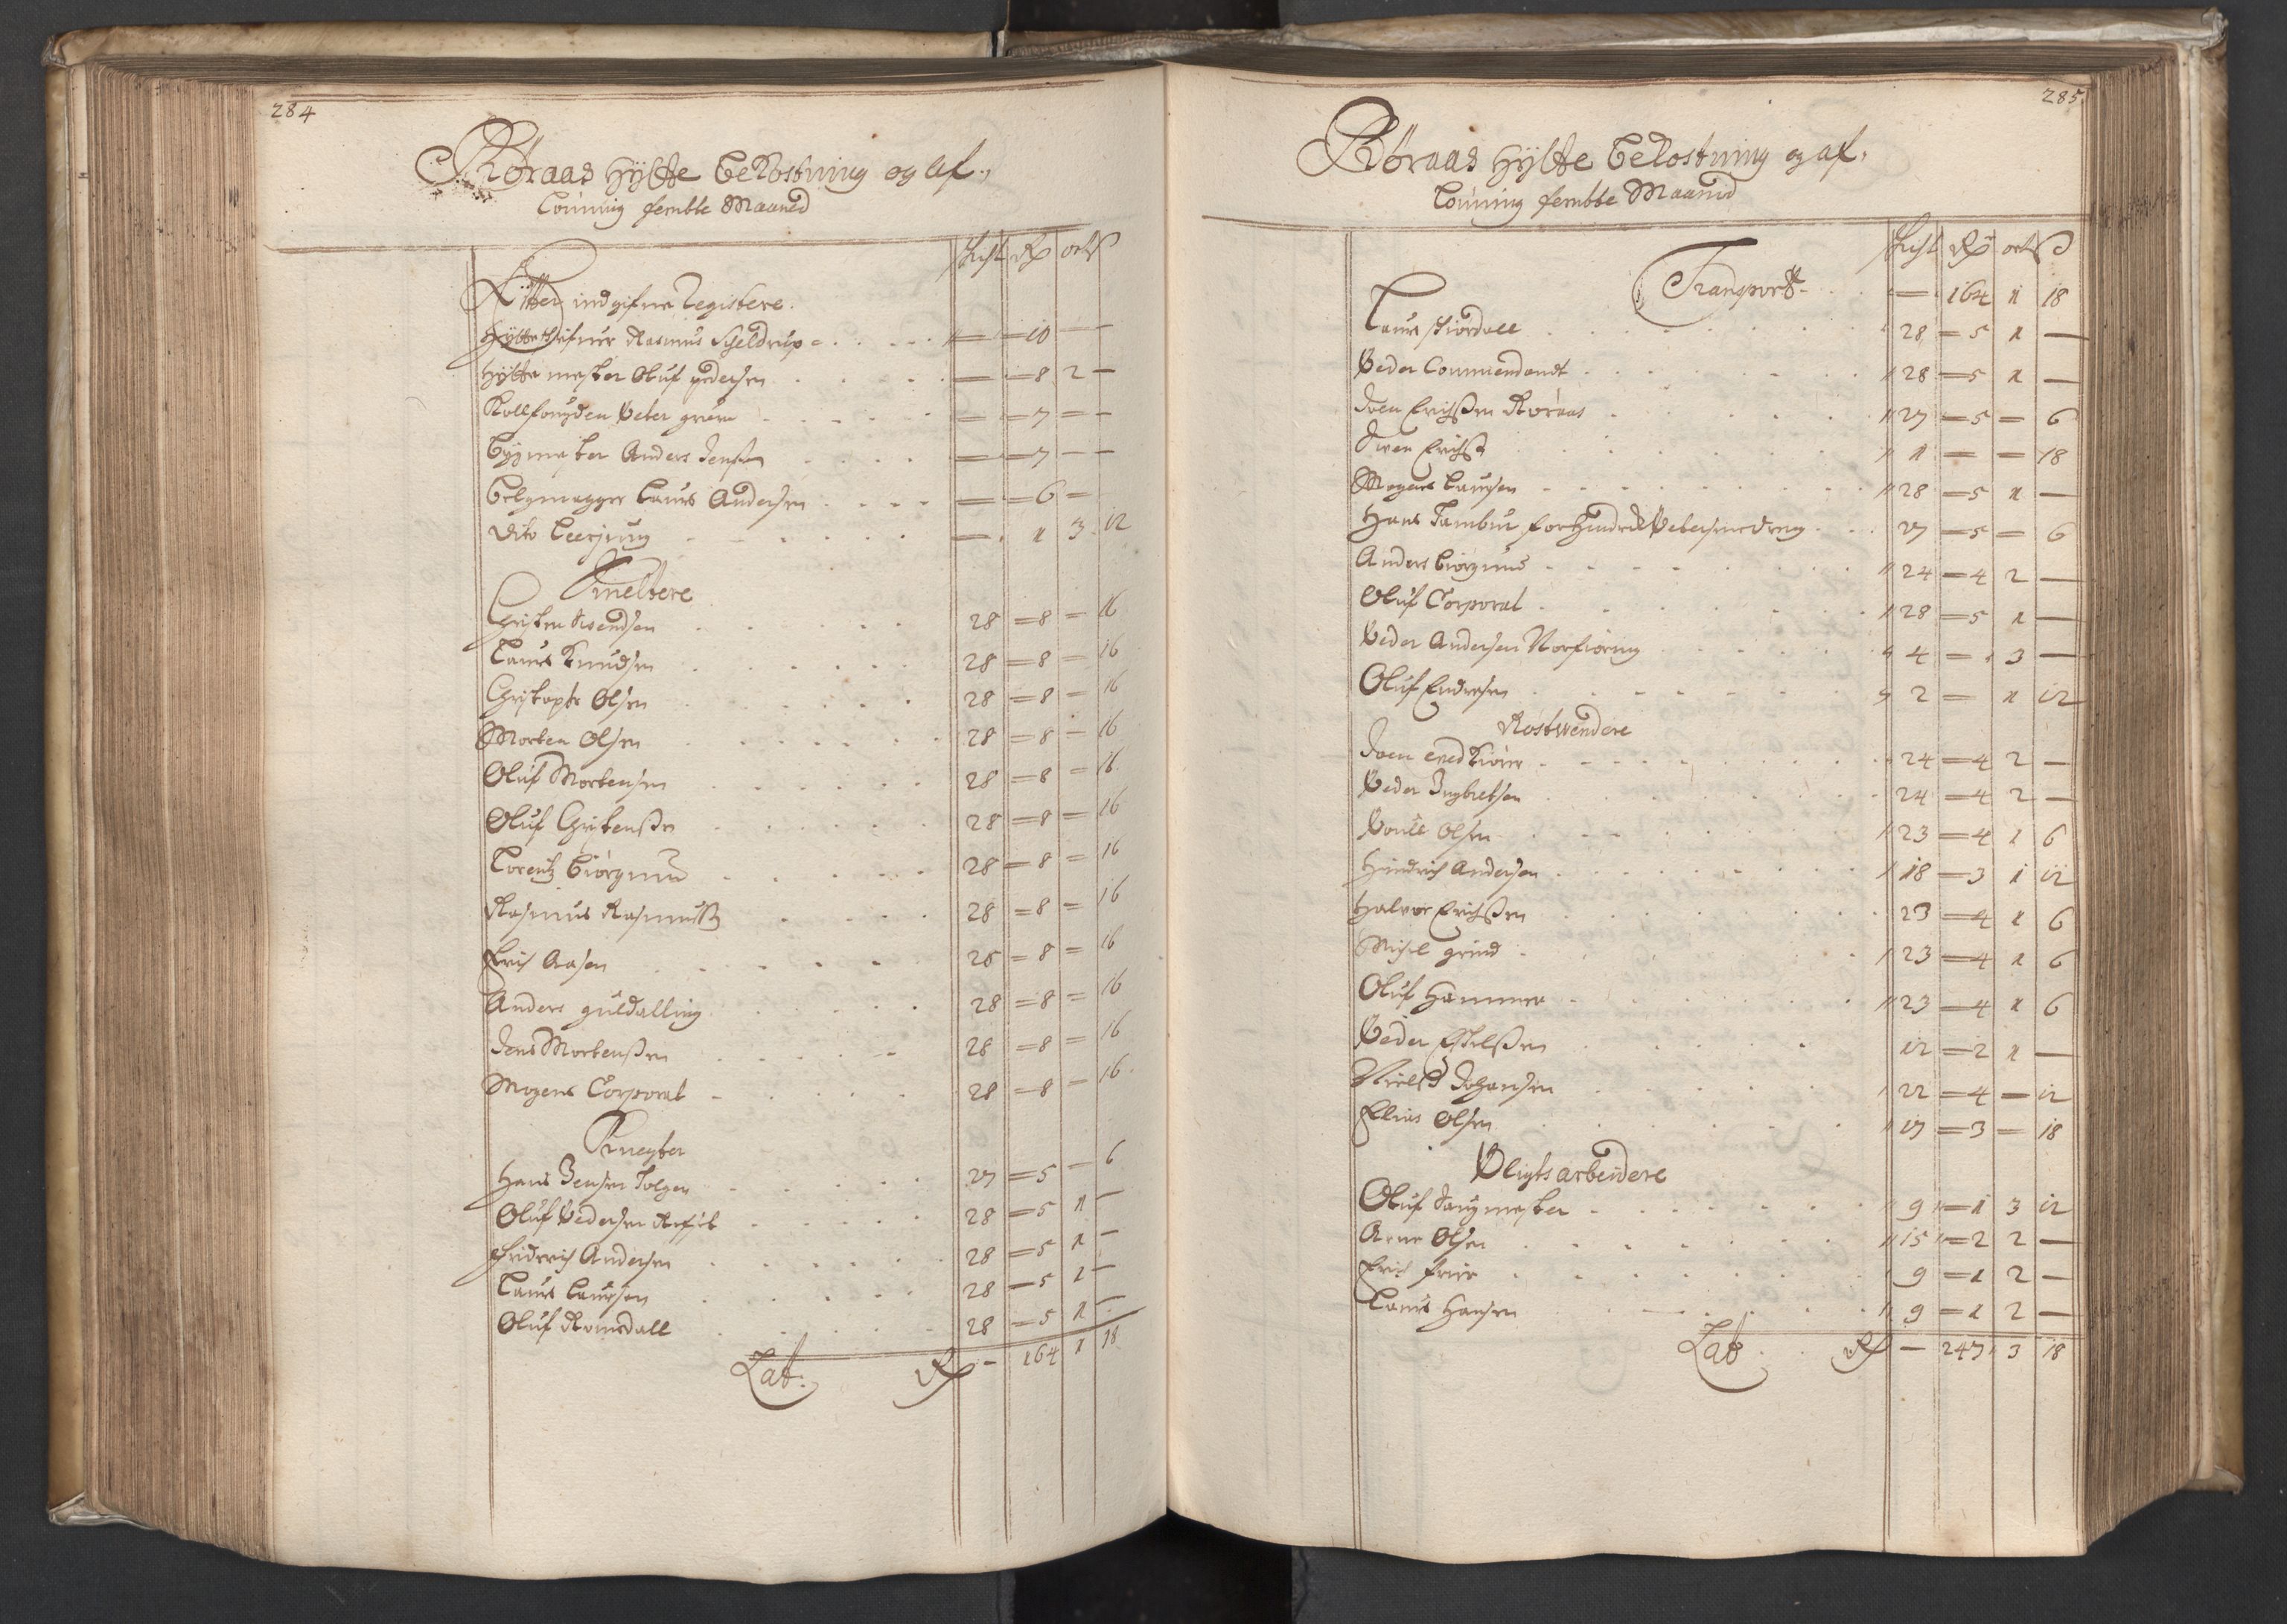 284
Røraas Hÿtte bekostning og af,,
Lønning fembte Maaned
Skist Rd ort ß
Effter indgifne Registere.
Hÿtteschrifuer Rasmus Scheldrup = — = 10 — —
Hÿttemester Oluf pedersen — = 8 2 —
Kollfougden Peter gruen — = 7 = —
Bygmester Anders Jensen — = 7 — —
Belgmagger Laurs Andersen — = 6 =
Dito Leerjung — 1 3 12
Smeltere
Christen Svendsen 28 = 8 = 16
Laurs Knudsen 28 = 8 = 16
Christopher Olsen 28 = 8 = 16
Morten Olsen 28 = 8 = 16
Oluf Mortensen 28 = 8 = 16
Oluf Christenssen 28 = 8 = 16
Lorentz Biørgmand 28 = 8 = 16
Rasmus Rasmuss: 28 = 8 = 16
Erich Aasen 28 = 8 = 16
Anders guldalling 28 = 8 = 16
Jens Mortenssen 28 = 8 = 16
Mogens Corporal 28 = 8 = 16
Knegter
Hans Jensen Tolgen 27 = 5 — 6
Oluf Pedersen 28 = 5 1 —
Fridrich Andersen 28 = 5 1 —
Laurs Laursen 28 = 5 1 —
Oluf Romsdall 28 = 5 1 —
Lat: Rd — 164 1 18
285
Røraas Hÿtte bekostning og af,
Lønning fembte Maaned
Skist Rd ort ß
Transport — 164 1 18
Laurs Stiørdall 28 = 5 1 —
Peder Commendandt 28 = 5 1 —
Joen Erichssen Røraas 27 = 5 = 6
Swen Erichss: 1 = = 18
Mogens Laursen 28 = 5 1 —
Hans Tambur for Hindrich Petersens dreng 27 = 5 = 6
Anders Biørgmand 24 = 4 2 —
Oluf Corporal 28 = 5 1 —
Peder Andersen Norfioring 4 = 3 —
Oluf Endresen 2 = 1 12
Rostwendere
Joen 24 = 4 2 —
Peder Ingbretsen 24 = 4 2 —
Pouell Olsen 23 = 4 1 6
Hindrich Andersen 18 = 3 1 12
Halvor Erichssen 23 = 4 1 6
Michel grind 23 = 4 1 6
Oluf Hammer 23 = 4 1 6
Peder Eskelssen 12 = 2 1 —
Niels Johansen 22 = 4 — 12
Ellias Olsen 17 = 3 = 18
Pligtsarbeidere
Oluf Saugmester 9 = 1 3 12
Arne Olsen 15 = 2 2 —
Erich friis 9 = 1 2 —
Laurs Hansen 9 = 1 2 —
Lat Rd — 247 3 18